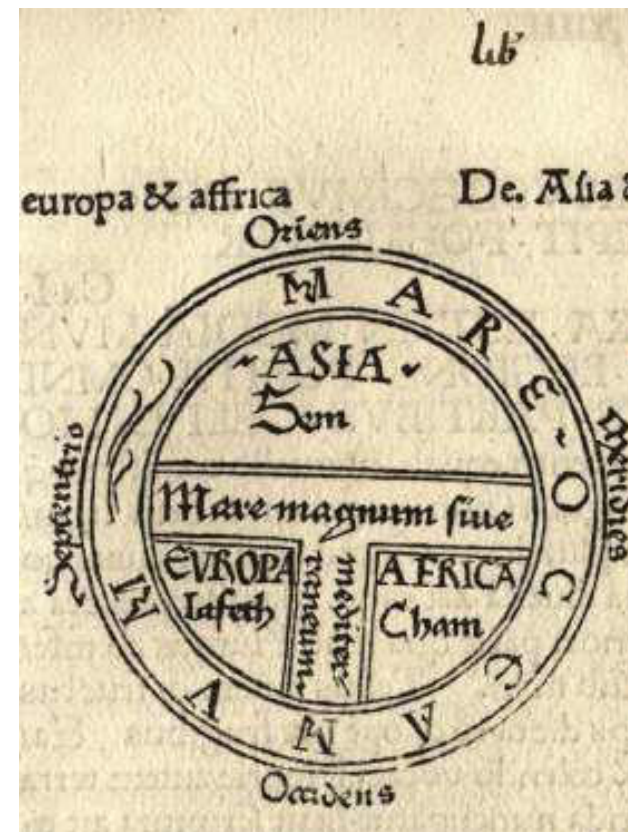 lib
europa & affrica
De. Asia &
Oriens
MARE OCCEANVM
Septentrio
Meridies
ASIA
Sem
Mare magnum siue
mediter
raneum
EVROPA
Iafeth
AFRICA
Cham
Occidens